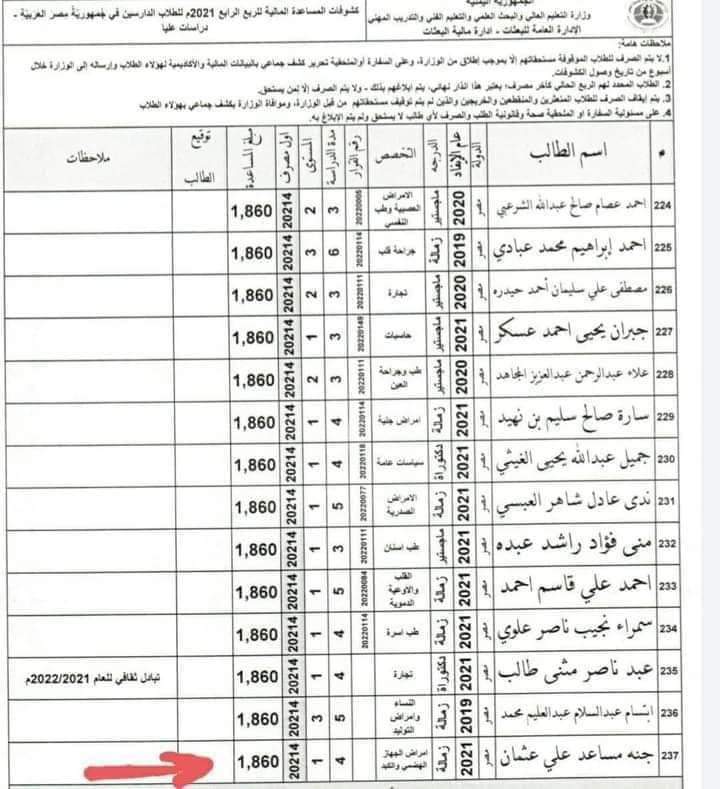 الجمهورية اليمنية
وزارة التعليم العالي والبحث العلمي والتعليم الفني والتدريب المهني
الإدارة العامة للبعثات - ادارة مالية البعثات
كشوفات المساعدة المالية للربع الرابع 2021م للطلاب الدارسين في جمهورية مصر العربية - دراسات عليا
ملاحظات هامة:
1. لا يتم الصرف للطلاب الموقوفة مستحقاتهم إلا بموجب إطلاق من الوزارة، وعلى السفارة أو الملحقية تحرير كشف جماعي بالبيانات المالية والأكاديمية لهؤلاء الطلاب وإرساله إلى الوزارة خلال
أسبوع من تاريخ وصول الكشوفات.
2. الطلاب المحدد لهم الربع الحالي كآخر مصرف، يعتبر هذا انذار نهائي، يتم ابلاغهم بذلك - ولا يتم الصرف إلا لمن يستحق.
3. يتم إيقاف الصرف للطلاب المتعثرين والمنقطعين والخريجين والذين لم يتم توقيف مستحقاتهم من قبل الوزارة، وموافاة الوزارة بكشف جماعي بهؤلاء الطلاب
4. على مسئولية السفارة أو الملحقية صحة وقانونية الطلب والصرف لأي طالب لا يستحق ولم يتم الإبلاغ به.
اسم الطالب الدولة عام الإيفاد الدرجة التخصص رقم القرار مدة الدراسة المستوى اول مصرف مبلغ المساعدة توقيع الطالب ملاحظات
224 احمد عصام صالح عبدالله الشرعبي مصر 2020 ماجستير الامراض العصبية وطب النفسي 20220005 3 2 20214 1,860
225 احمد إبراهيم محمد عبادي مصر 2019 زمالة جراحة قلب 20220114 6 3 20214 1,860
226 مصطفى علي سليمان أحمد حيدره مصر 2020 ماجستير تجارة 20220111 3 2 20214 1,860
227 جبران يحيى احمد عسكر مصر 2021 ماجستير حاسبات 20220149 3 1 20214 1,860
228 علاء عبدالرحمن عبدالعزيز المجاهد مصر 2020 ماجستير طب وجراحة العين 20220111 3 2 20214 1,860
229 سارة صالح سليم بن نهيد مصر 2021 زمالة امراض جلدية 20220114 4 1 20214 1,860
230 جميل عبدالله يحيى الغيثي مصر 2021 دكتوراة سياسات عامة 20220118 4 1 20214 1,860
231 ندى عادل شاهر العبسي مصر 2021 زمالة الامراض الصدرية 20220077 5 1 20214 1,860
232 منى فؤاد راشد عبده مصر 2021 ماجستير طب اسنان 20220111 3 1 20214 1,860
233 احمد علي قاسم احمد مصر 2021 زمالة القلب والاوعية الدموية 20220084 5 1 20214 1,860
234 سمراء نجيب ناصر علوي مصر 2021 زمالة طب اسرة 20220114 4 1 20214 1,860
235 عبد ناصر مثنى طالب مصر 2021 دكتوراة تجارة 4 1 20214 1,860 تبادل ثقافي للعام 2022/2021م
236 ابتسام عبدالسلام عبدالعليم محمد مصر 2019 زمالة النساء وامراض التوليد 5 3 20214 1,860
237 جنه مساعد علي عثمان مصر 2021 زمالة امراض الجهاز الهضمي والكبد 4 1 20214 1,860